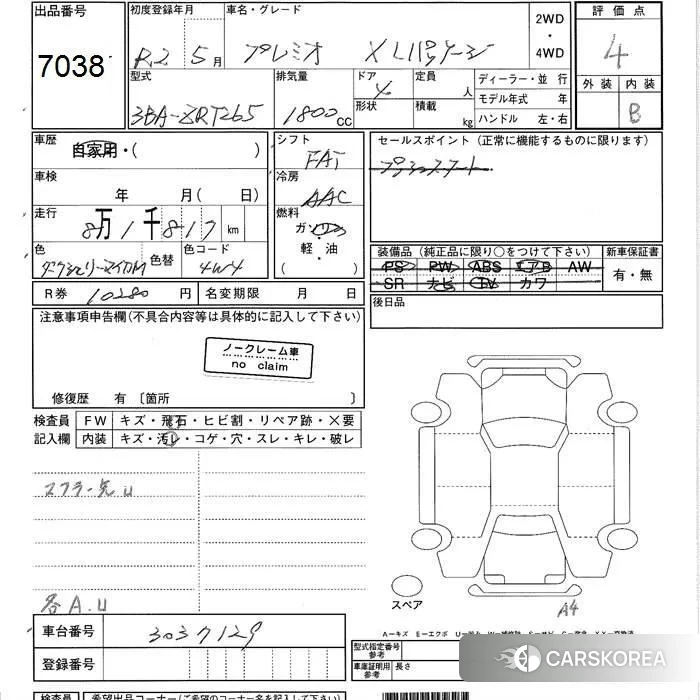 出品番号 初度登録年月 車名・グレード 2WD・4WD 評価点
7038 R2 5月 プレミオ XLパッケージ 4
型式 排気量 ドア 定員 人 ディーラー・並行 外装 内装
3BA-ZRT265 1800cc 4 形状 積載 kg モデル年式 年 B
ハンドル 左・右
車歴 自家用・( ) シフト FAT セールスポイント (正常に機能するものに限ります)
プッシュスタート
車検 年 月( 日) 冷房 AAC
走行 8万1千817km 燃料 ガソリン・軽・油 ( )
色 色替 色コード 4W4
装備品 (純正品に限り○をつけて下さい) 新車保証書
PS PW ABS エアB AW 有・無
SR ナビ TV カワ
R券 10280円 名変期限 月 日 後日品
注意事項申告欄(不具合内容等は具体的に記入して下さい)
ノークレーム車
no claim
修復歴 有〔箇所 〕
検査員 FW キズ・飛石・ヒビ割・リペア跡・X要
記入欄 内装 キズ・汚レ・コゲ・穴・スレ・キレ・破レ
マフラー先U
各A.U
スペア
A4
車台番号 3037129
型式指定番号 参考
登録番号
車庫証明用 参考 長さ
CARSKOREA
検査員 希望出品コーナー(ご希望のコーナー名を記入下さい)